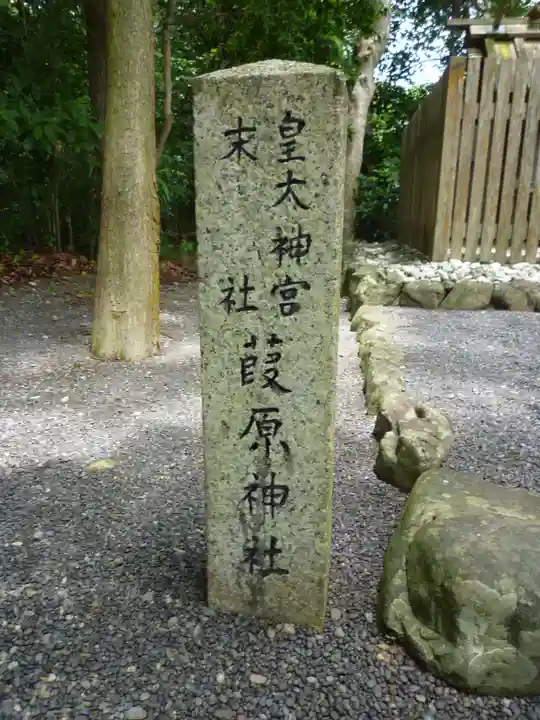 皇太神宮
末社
葭原神社